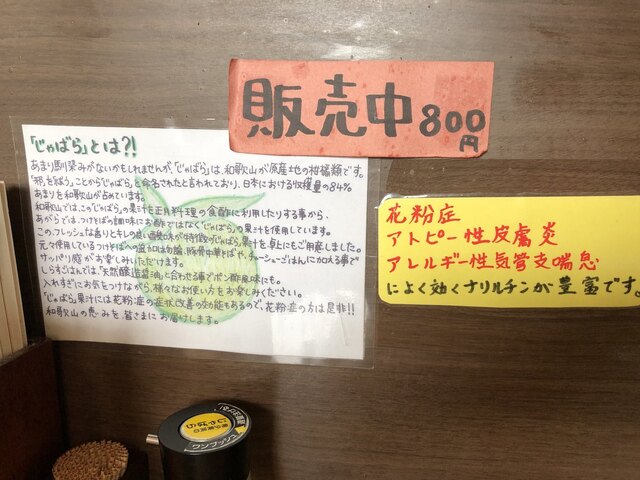 販売中 800円
「じゃばら」とは?!
あまり馴染みがないかもしれませんが、「じゃばら」は、和歌山が原産地の柑橘類です。
「邪」を「はらう」ことから「じゃばら」と命名されたと言われており、日本における収穫量の84%
あまりを和歌山が占めています。
和歌山では、この「じゃばら」の果汁を正月料理の食酢に利用したりする事から、
あがらでは、つけそばの調味にお酢ではなく「じゃばら」の果汁を使用しています。
この、フレッシュな香りとキレの良い酸味が特徴の「じゃばら」果汁を卓上にもご用意しました。
元々使用しているつけそばへの追加は勿論、豚骨中華そばや、チャーシューごはんに加える事で
サッパリ感がお楽しみいただけます。
しらすごはんでは、「天然醸造醤油」と合わせる事でポン酢風味にも。
入れすぎにお気をつけながら、様々なお使い方をお楽しみください。
「じゃばら」果汁には花粉症の症状改善の効能もあるので、花粉症の方は是非!!
和歌山の恵みを皆さまにお届けします。
花粉症
アトピー性皮膚炎
アレルギー性気管支喘息
によく効くナリルチンが豊富です。
ワンプッシュ